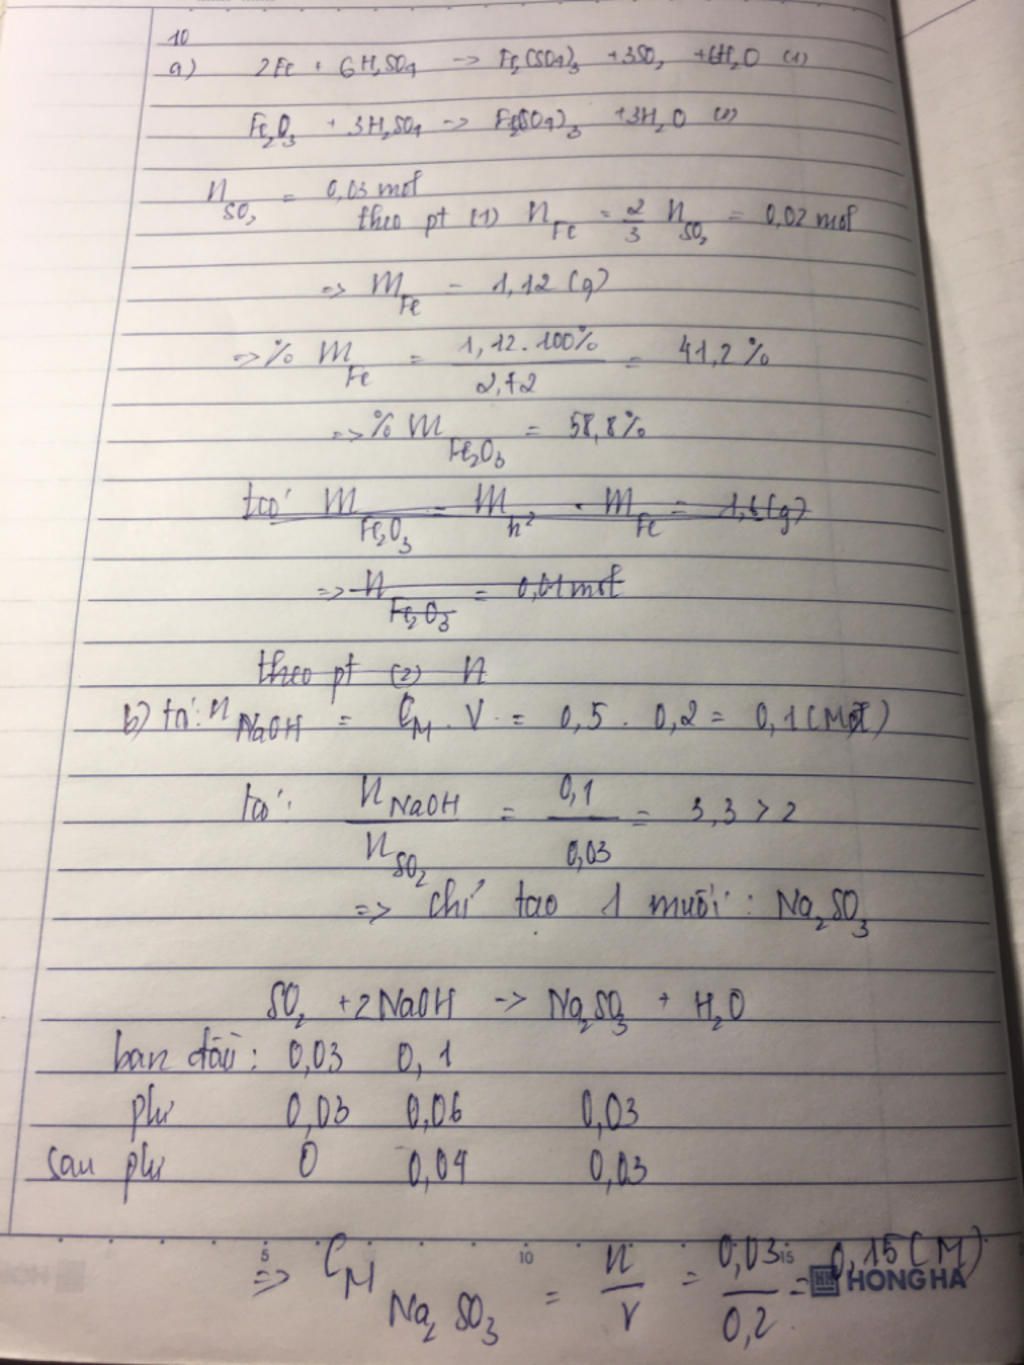 10
a) 2Fe + 6H₂SO₄ -> Fe₂(SO₄)₃ + 3SO₂ + 6H₂O (1)
Fe₂O₃ + 3H₂SO₄ -> Fe₂(SO₄)₃ + 3H₂O (2)
n SO₂ = 0,03 mol
theo pt (1) n Fe = 2/3 n SO₂ = 0,02 mol
=> m Fe = 1,12 (g)
=> % m Fe = 1,12 . 100% / 2,72 = 41,2 %
=> % m Fe₂O₃ = 58,8%
tcó: m Fe₂O₃ = m h² - m Fe = 1,6 (g)
=> n Fe₂O₃ = 0,01 mol
theo pt (2) n
b) tcó: n NaOH = C_M . V = 0,5 . 0,2 = 0,1 (Mol)
tcó: n NaOH / n SO₂ = 0,1 / 0,03 = 3,3 > 2
=> chỉ tạo 1 muối: Na₂SO₃
SO₂ + 2NaOH -> Na₂SO₃ + H₂O
ban đầu: 0,03 0,1
pư 0,03 0,06 0,03
sau pư 0 0,04 0,03
5 10 15
=> C_M Na₂SO₃ = n / V = 0,03 / 0,2 = 0,15 (M)
HH HONG HA